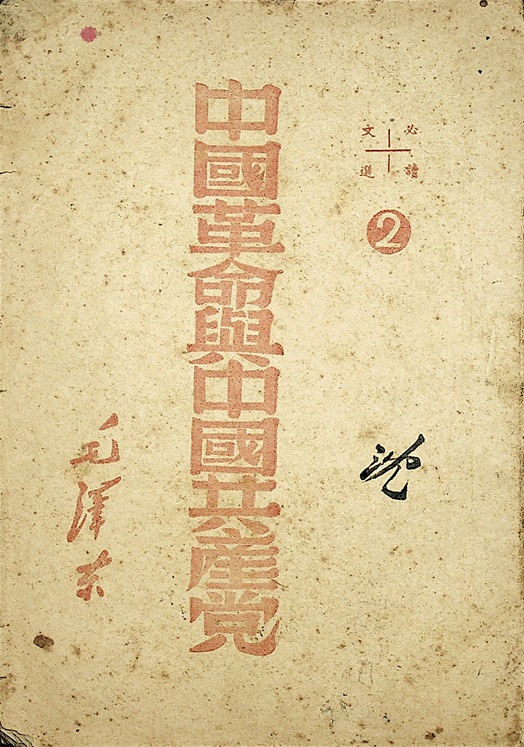 必讀
文選
2
中國革命與中國共產党
毛澤东